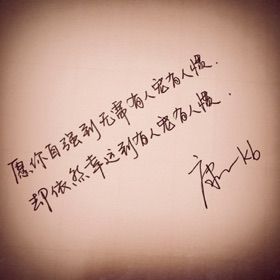 愿你自强到无需有人宠有人惯.
却依然幸运到有人宠有人惯.
kb